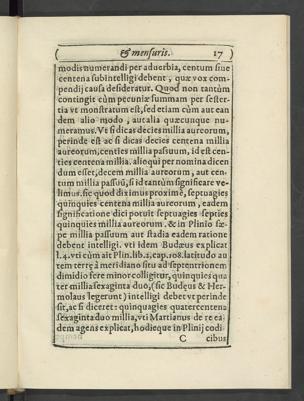 & mensuris. 17
modis numerandi per aduerbia, centum siue
centena subintelligi debent, quæ vox com-
pendij causa desideratur. Quod non tantùm
contingit cùm pecuniæ summam per sester-
tia vt monstratum est, sed etiam cùm aut ean
dem alio modo, aut alia quæcunque nu-
meramus. Vt si dicas decies millia aureorum,
perinde est ac si dicas decies centena millia
aureorum, centies millia passuum, id est cen-
ties centena millia. alioqui per nomina dicen
dum esset, decem millia aureorum, aut cen-
tum millia passuũ, si id tantùm significare ve-
limus. sic quod diximus proximè, septuagies
quinquies centena millia aureorum, eadem
significatione dici potuit septuagies septies
quinquies millia aureorum. & in Plinio sæ-
pe millia passuum aut stadia eadem ratione
debent intelligi. vti idem Budæus explicat
l.4. vti cùm ait Plin. lib.2. cap.108. latitudo au
tem terrę à meridiano situ ad septentrionem
dimidio fere minor colligitur, quinquies qua
ter millia sexaginta duo, (sic Budęus & Her-
molaus legerunt) intelligi debet vt perinde
sit, ac si diceret: quinquagies quatercentena
sexaginta duo millia, vti Martianus de re ea-
dem agens explicat, hodieque in Plinij codi-
C cibus